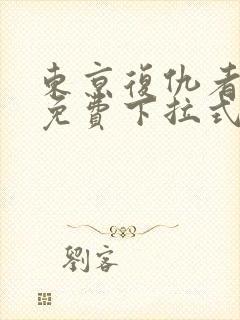 東京復仇者
免費下拉式
劉客